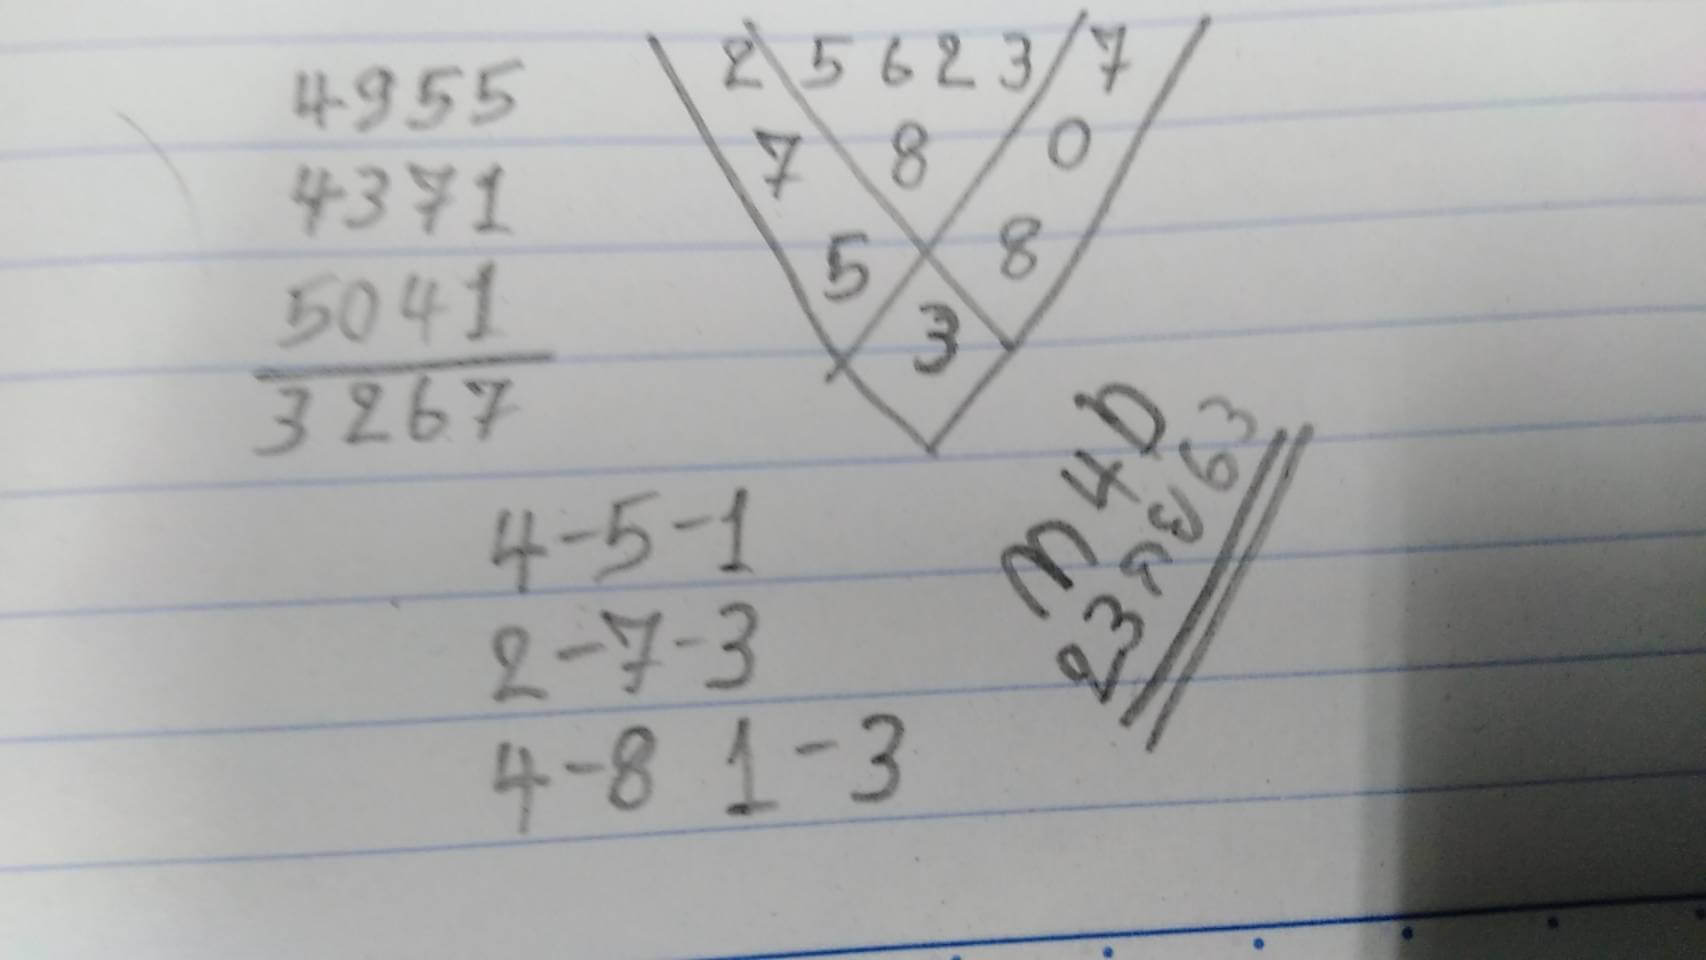 4955
4371
5041
3267
2 5 6 2 3 7
7 8 0
5 8
3
4-5-1
2-7-3
4-8 1-3
M4D
23 กย 63